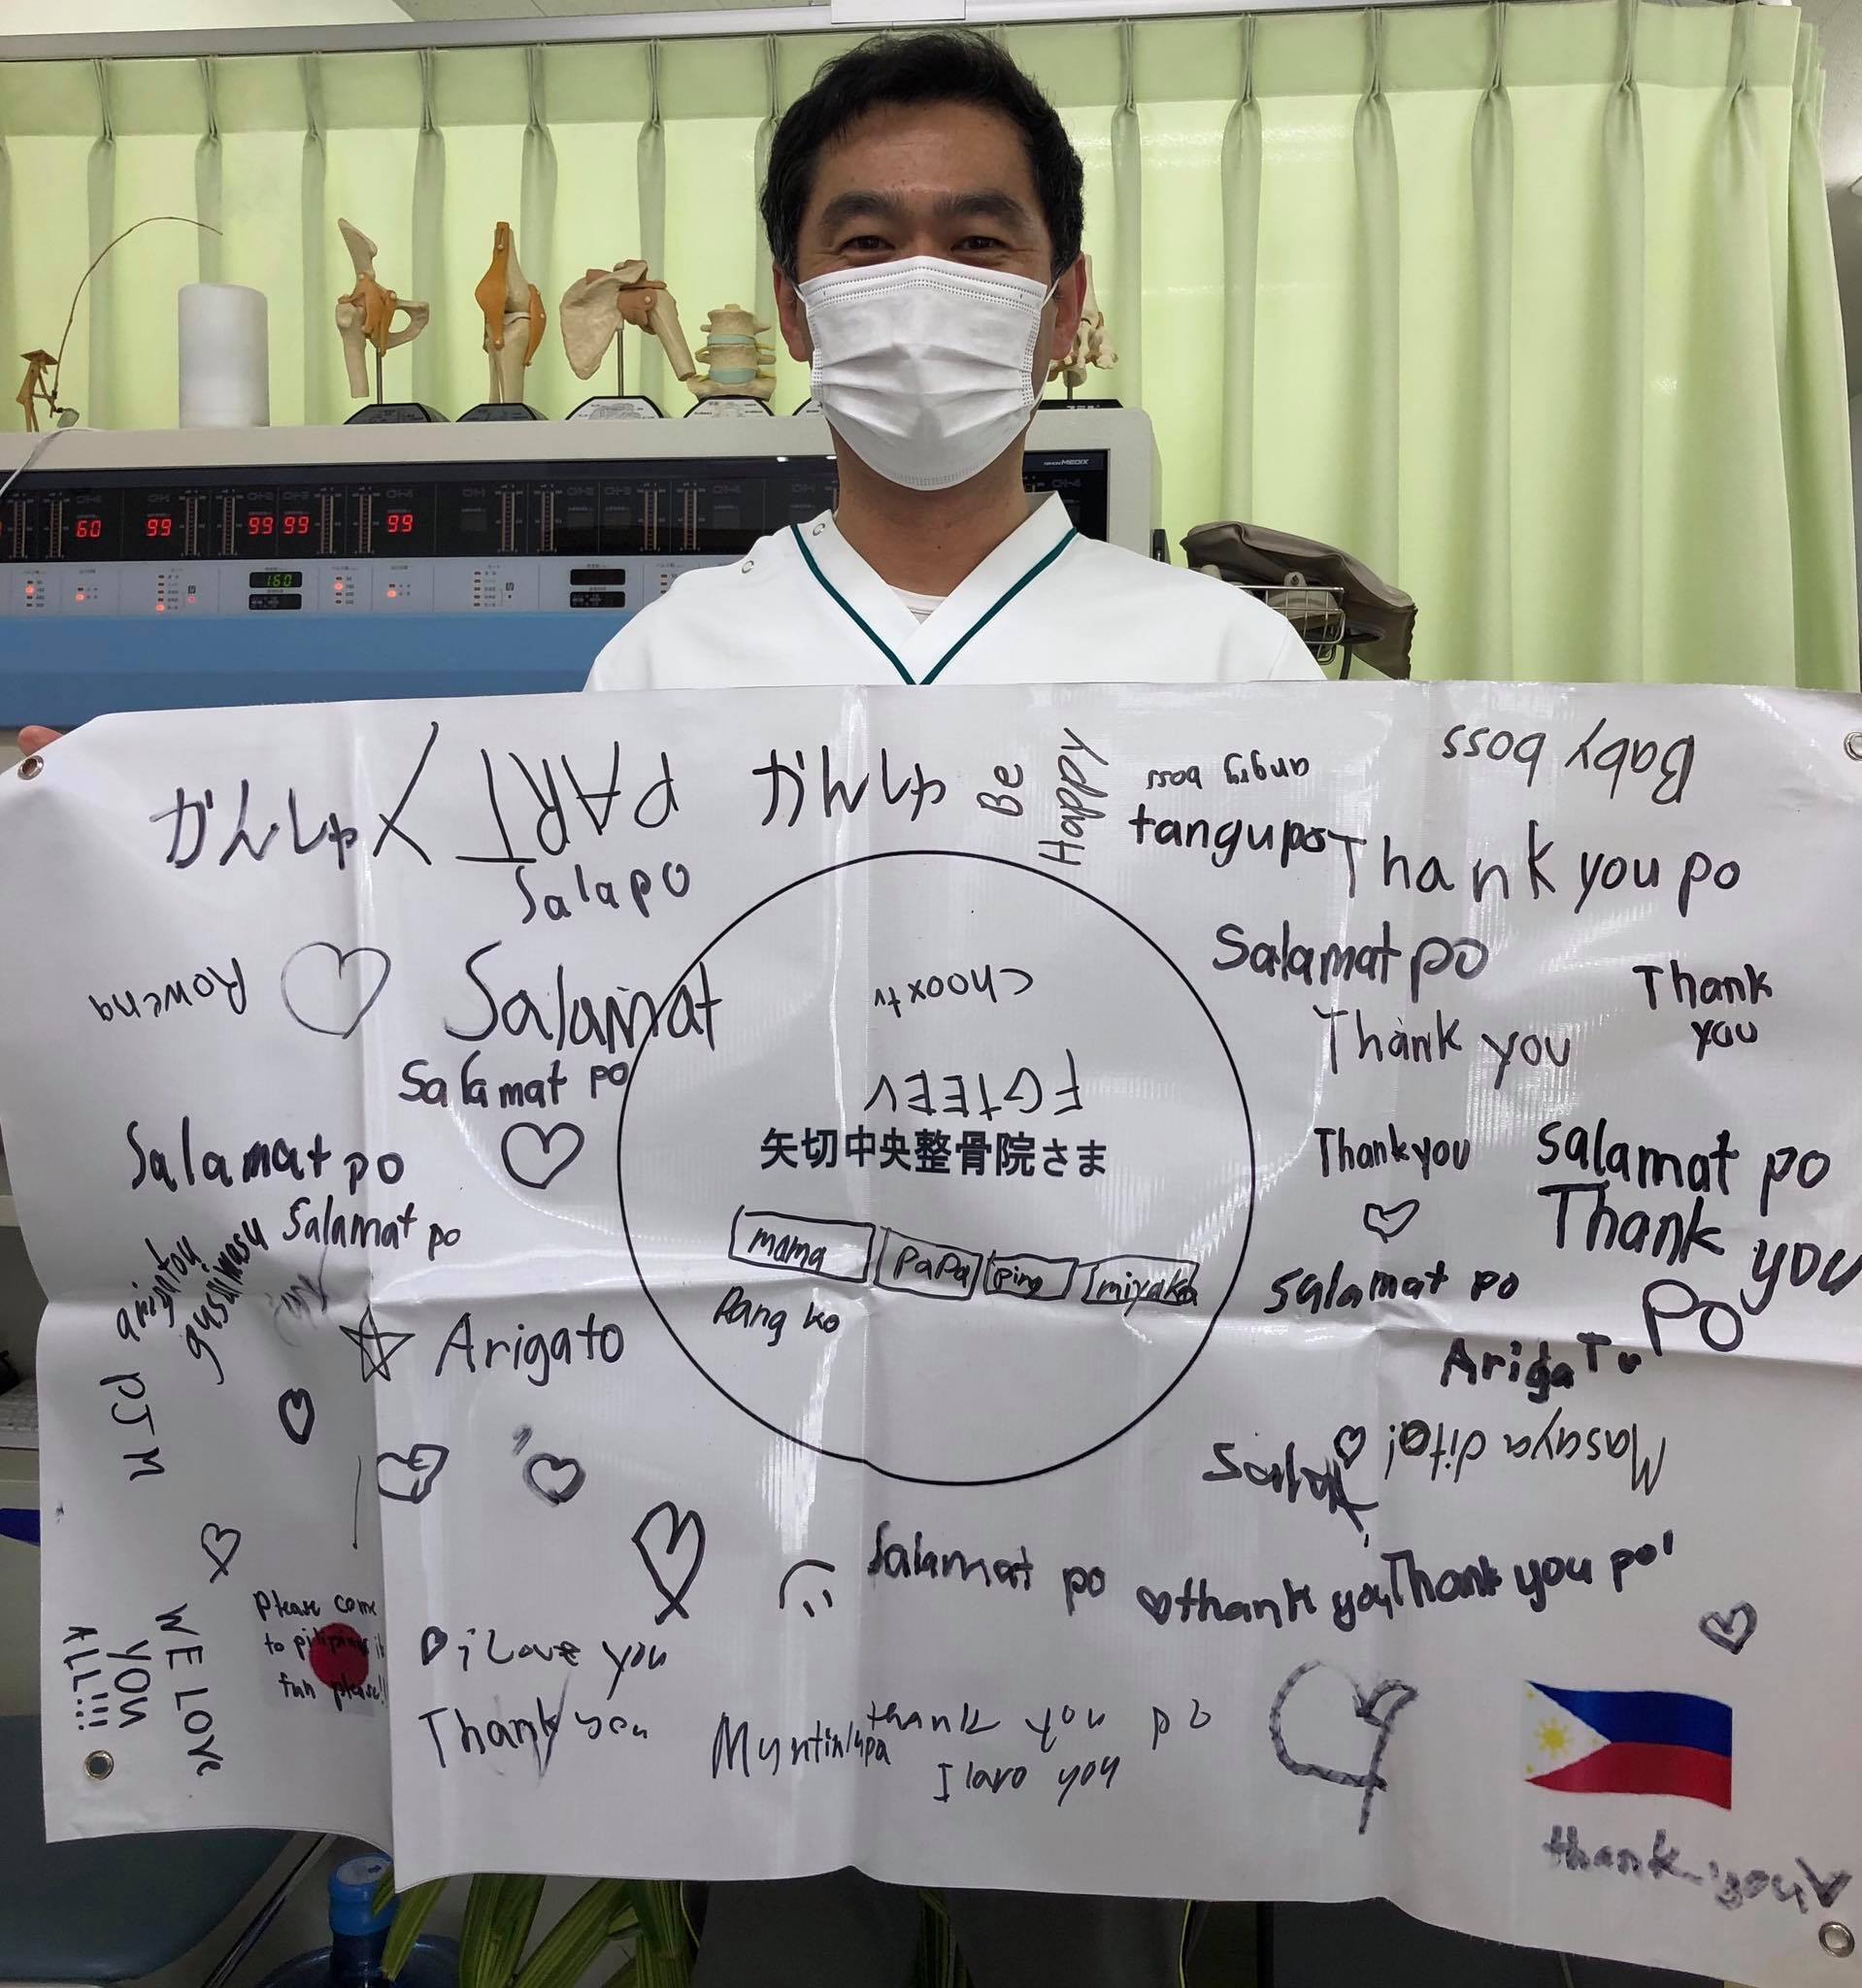 MEDIX
60
99
99 99
99
160
がんしゃ
PART
がんしゃ
Be
Happy
angry boss
Baby boss
tangupo
Thank you po
Salapo
Rowena
Salamat
Choox tv
Salamat po
Thank you
Thank
you
Salamat po
FGTEEV
矢切中央整骨院さま
Salamat po
Thank you
Salamat po
Thank you
Po
Salamat po
mama
PaPa
Ping
miyaka
Rang ko
Salamat po
arigatou
gusuimasu
Arigato
ArigaTo
PJM
Masaya dito!
Salamat po
thank you
Thank you po!
WE LOVE
YOU
ALL!!!
Please come
to pilipinas it
fun please!!
i Love you
Thank you
Muntinlupa
thank you po
I lavo you
thank you